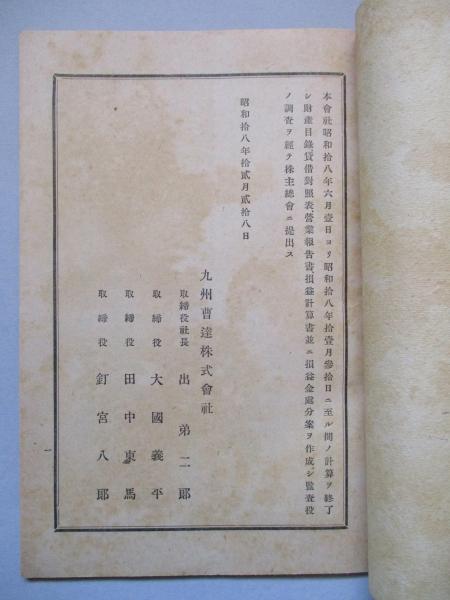 本會社昭和拾八年六月壹日ヨリ昭和拾八年拾壹月參拾日ニ至ル間ノ計算ヲ終了
シ財產目錄貸借對照表、營業報告書、損益計算書並ニ損益金處分案ヲ作成シ監査役
ノ調査ヲ經テ株主總會ニ提出ス
昭和拾八年拾貳月貳拾八日
九州曹達株式會社
取締役社長 出弟二郎
取締役 大國義平
取締役 田中東馬
取締役 釘宮八郞
一